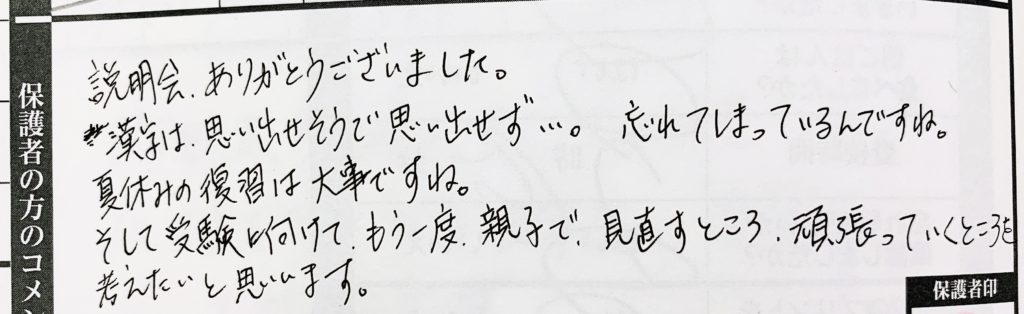 保護者の方のコメン
説明会、ありがとうございました。
漢字は、思い出せそうで思い出せず…。 忘れてしまっているんですね。
夏休みの復習は大事ですね。
そして受験に向けて、もう一度、親子で、見直すところ、頑張っていくところを
考えたいと思います。
保護者印